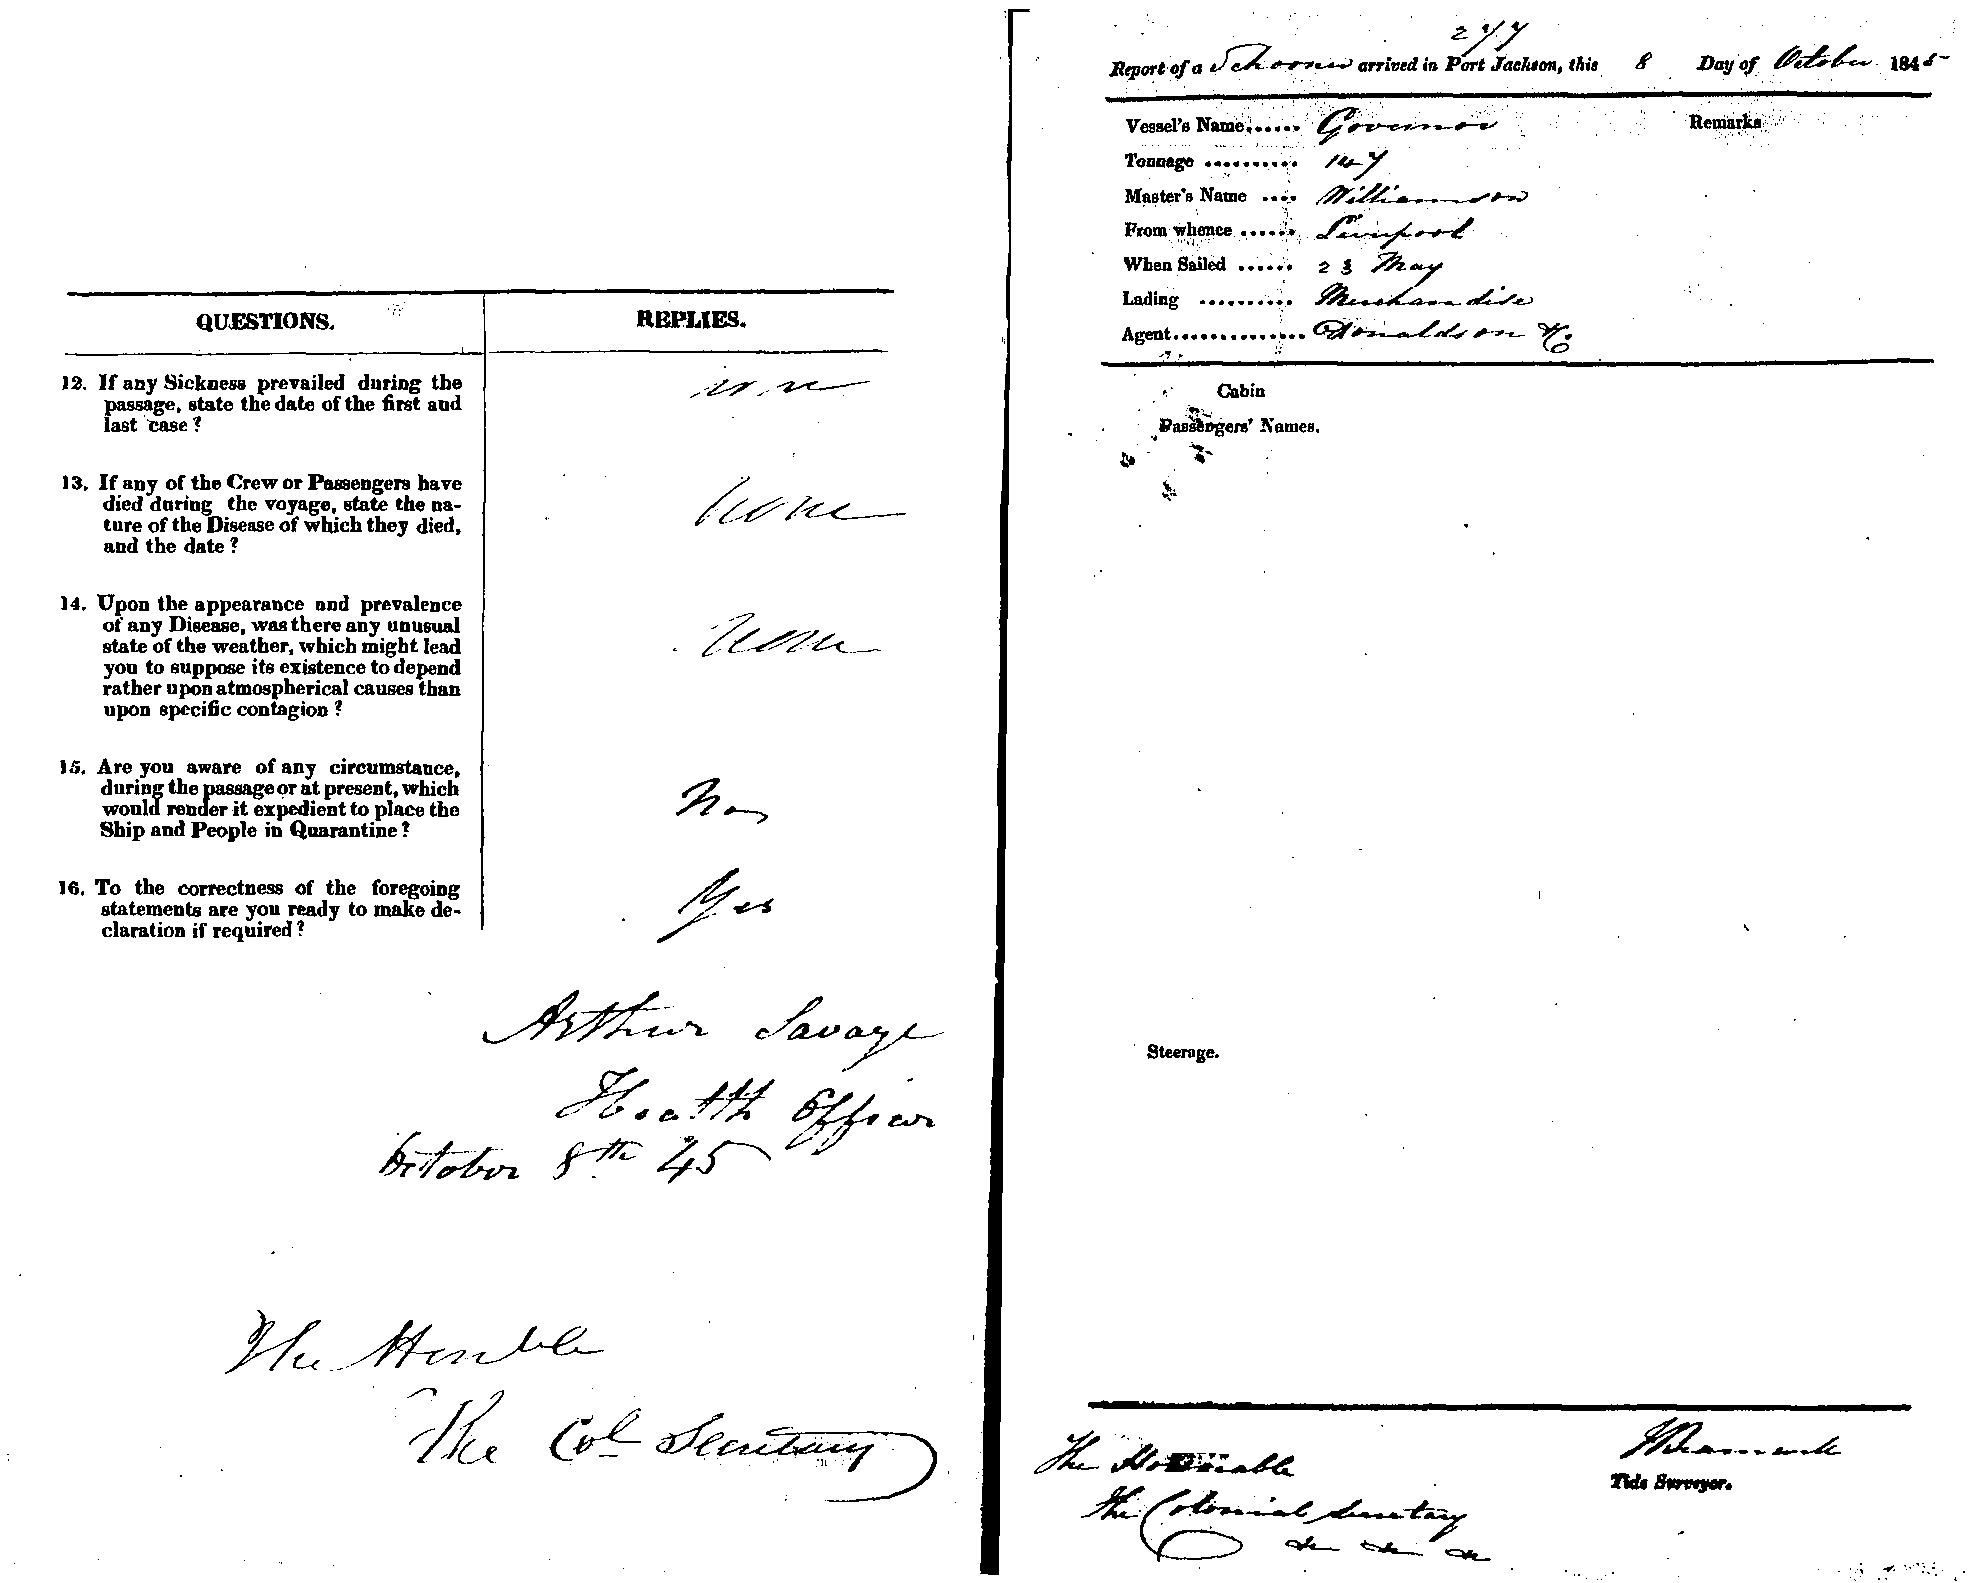 QUESTIONS.
REPLIES.
12. If any Sickness prevailed during the
passage, state the date of the first and
last case?
none
13. If any of the Crew or Passengers have
died during the voyage, state the na-
ture of the Disease of which they died,
and the date?
None
14. Upon the appearance and prevalence
of any Disease, was there any unusual
state of the weather, which might lead
you to suppose its existence to depend
rather upon atmospherical causes than
upon specific contagion?
None
15. Are you aware of any circumstance,
during the passage or at present, which
would render it expedient to place the
Ship and People in Quarantine?
No
16. To the correctness of the foregoing
statements are you ready to make de-
claration if required?
Yes
Arthur Savage
Health Officer
October 8th 45
The Honble
The Col Secretary
277
Report of a Schooner arrived in Port Jackson, this 8 Day of October 1845
Vessel's Name...... Governor
Remarks
Tonnage .......... 147
Master's Name .... Williamson
From whence ...... Liverpool
When Sailed ...... 23 May
Lading .......... Merchandise
Agent.............. Donaldson & Co
Cabin
Passengers' Names.
Steerage.
The Honorable
The Colonial Secretary
&c &c &c
Tide Surveyor.